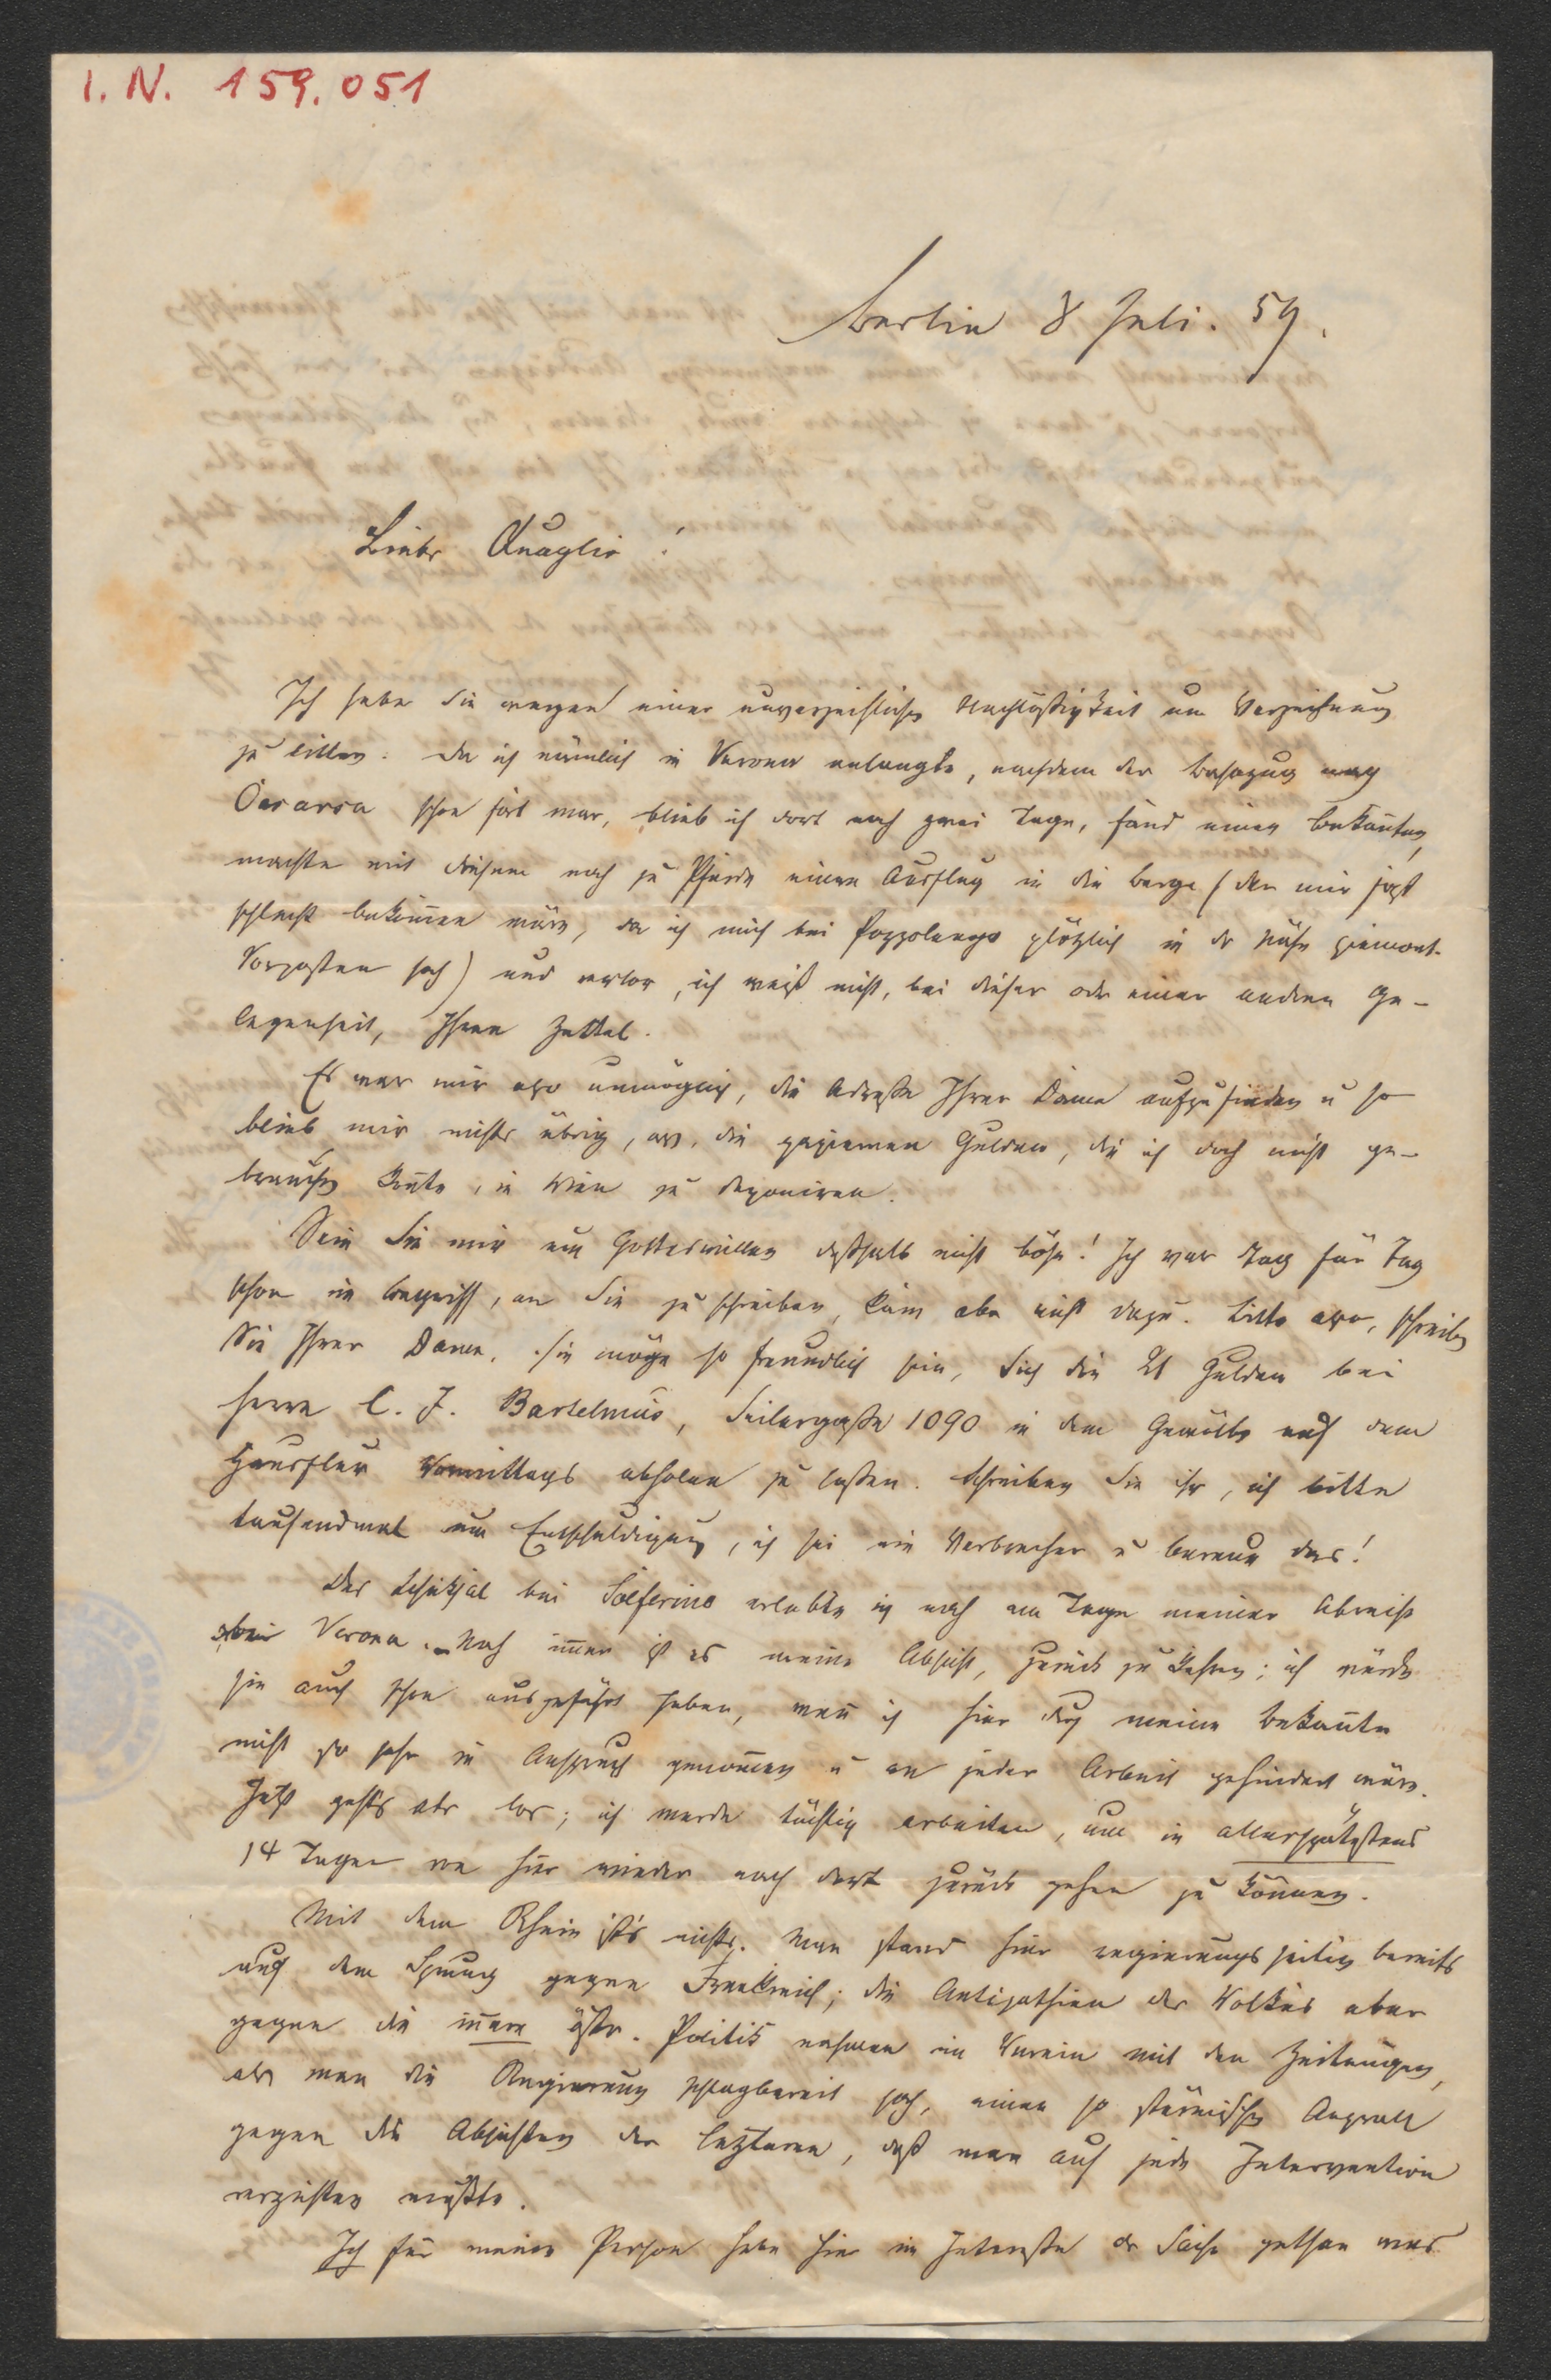 I. N. 159.051
Berlin 8 Juli. 59.
Lieber Quaglio!
Ich habe Sie wegen einer unverzeihlichen Nachläßigkeit um Verzeihung
zu bitten. Da ich nämlich in Verona anlangte, nachdem der Bahnzug nach
Casarsa schon fort war, blieb ich dort noch zwei Tage, fand einen Bekan̄ten,
machte mit diesem noch zu Pferde einen Ausflug in die Berge (der mir fast
schlecht bekom̄en wäre, da ich mich bei Pozzolengo plötzlich in der Nähe piemont.
Vorposten sah) und verlor, ich weiß nicht, bei dieser oder einer andren Ge-
legenheit, Ihren Zettel.
Es war mir also unmöglich, die Adreße Ihrer Dame aufzufinden u so
blieb mir nichts übrig, als, die papiernen Gulden, die ich doch nicht ge-
brauchen kon̄te, in Wien zu deponiren.
Sein Sie mir um Gotteswillen deßhalb nicht böse! Ich war Tag für Tag
schon im Begriff, an Sie zu schreiben, kam aber nicht dazu. Bitte also, schreiben
Sie Ihrer Dame, sie möge so freundlich sein, sich die 21 Gulden bei
Herrn C. J. Bartelmus, Seilergaße 1090 in dem Gewölbe auf dem
Hausflur Vormittags abholen zu laßen. Schreiben Sie ihr, ich bitte
tausendmal um Entschuldigung, ich sei ein Verbrecher u bereue das!
Das Schicksal bei Solferino erlebte ich noch am Tage meiner Abreise
Verona. Noch im̄er ist es meine Absicht, zurück zu kehren; ich würde
sie auch schon ausgeführt haben, wen̄ ich hier durch meine Bekan̄te
nicht so sehr in Anspruch genom̄en u an jeder Arbeit gehindert wäre.
Jetzt geht's aber los; ich werde tüchtig arbeiten, um in allerspätestens
14 Tagen von hier wieder nach dort zurück gehen zu kön̄en.
Mit dem Rhein ist's nichts. Man stand hier regierungsseitig bereits
auf dem Sprung gegen Frankreich; die Antipathien des Volkes aber
gegen die in̄ere östr. Politik nahmen im Verein mit den Zeitungen,
als man die Regierung schlagbereit sah, einen so stürmischen Anprall
gegen die Absichten der letzteren, daß man auf jede Intervention
verzichten mußte.
Ich für meine Person habe hier im Intereße der Sache gethan was